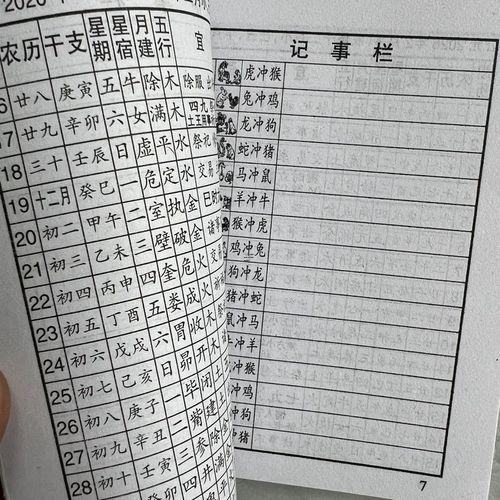 2026
农历 干支 星期 星宿 月建 五行 宜
6 廿八 庚寅 五 牛 除 木 除服
17 廿九 辛卯 六 女 满 木 四九 土王用事
18 三十 壬辰 日 虚 平 水 祭祀
19 十二月 癸巳 危 定 水 交易
20 初二 甲午 二 室 执 金
21 初三 乙未 三 壁 破 金 诸事
22 初四 丙申 四 奎 危 火 交易
23 初五 丁酉 五 娄 成 火
24 初六 戊戌 六 胃 收 木
25 初七 己亥 日 昴 开 木
26 初八 庚子 一 毕 闭 土
27 初九 辛丑 二 觜 建 土
28 初十 壬寅 三 参 除
癸卯 四 井 满
记事栏
虎冲猴
兔冲鸡
龙冲狗
蛇冲猪
马冲鼠
羊冲牛
猴冲虎
鸡冲兔
狗冲龙
猪冲蛇
鼠冲马
牛冲羊
冲猴
冲鸡
冲狗
冲猪
7